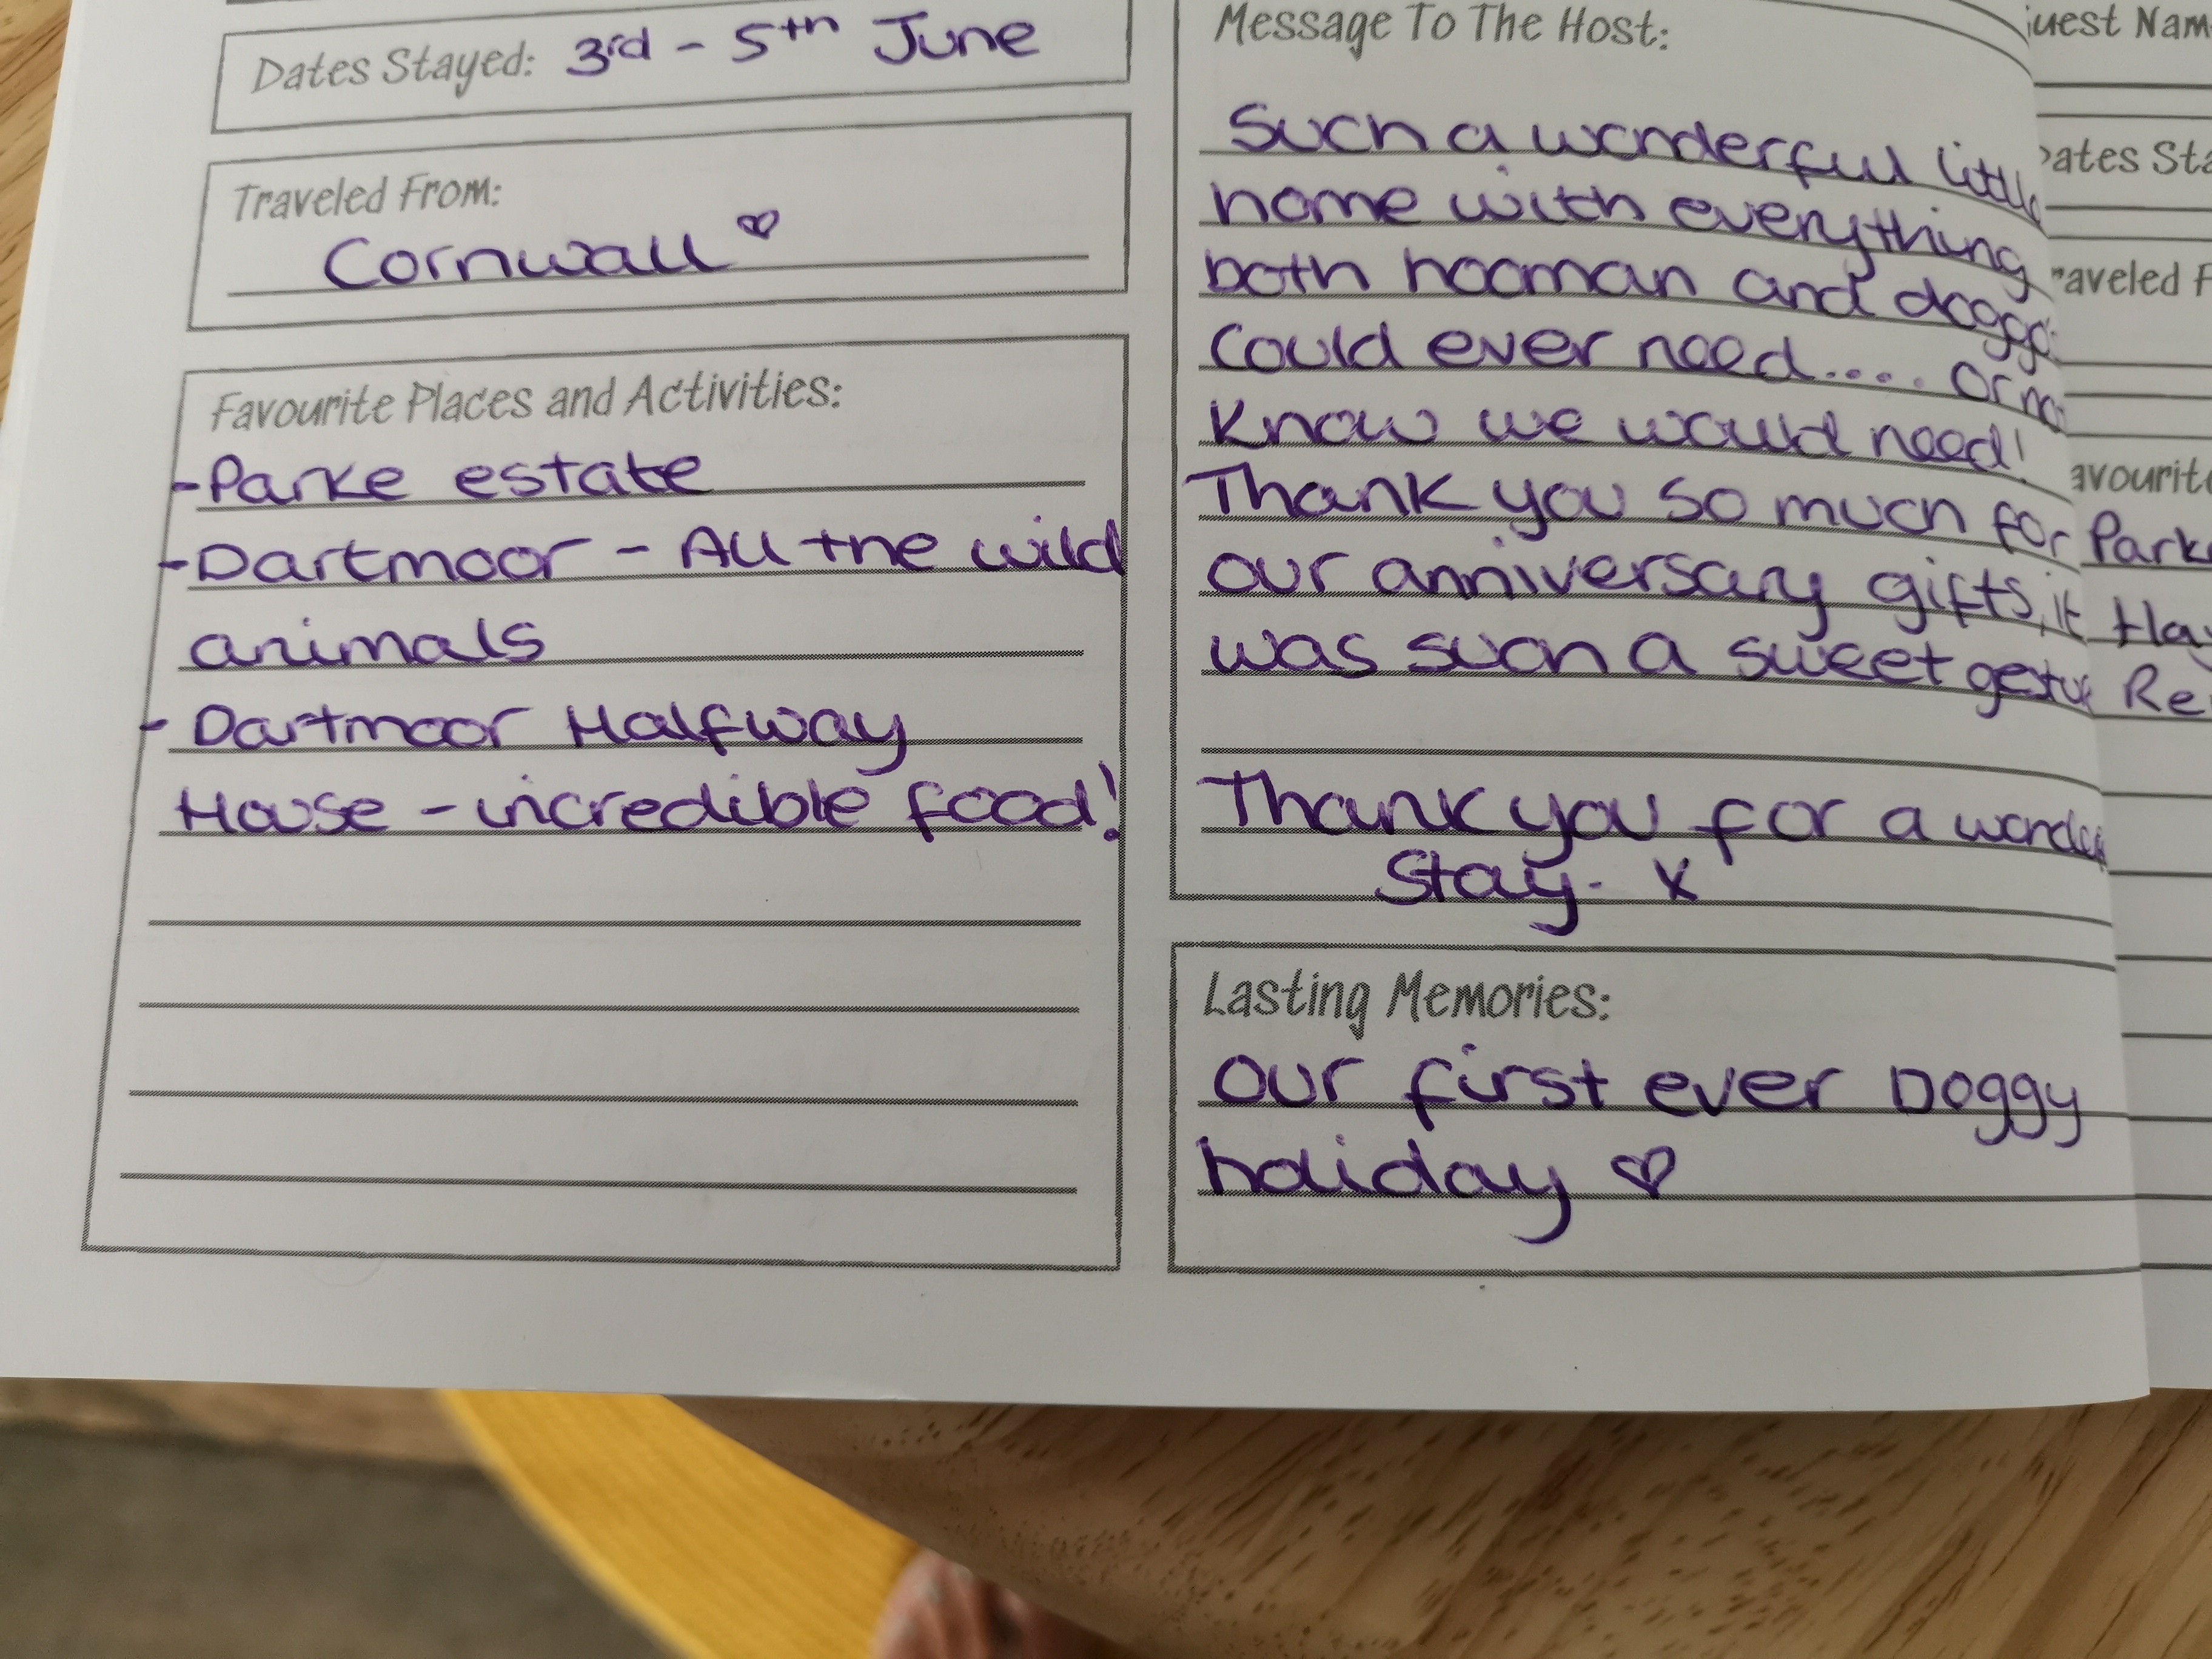 Dates Stayed: 3rd - 5th June
Traveled From:
Cornwall ♡
Favourite Places and Activities:
-Parke estate
-Dartmoor - All the wild
animals
- Dartmoor Halfway
House - incredible food!
Message To The Host:
Such a wonderful little
home with everything
both hooman and doggo
Could ever need.... Or
Know we would need!
Thank you so much for
our anniversary gifts, it
was such a sweet
Thank you for a
Stay. x
Lasting Memories:
Our first ever Doggy
holiday ♡